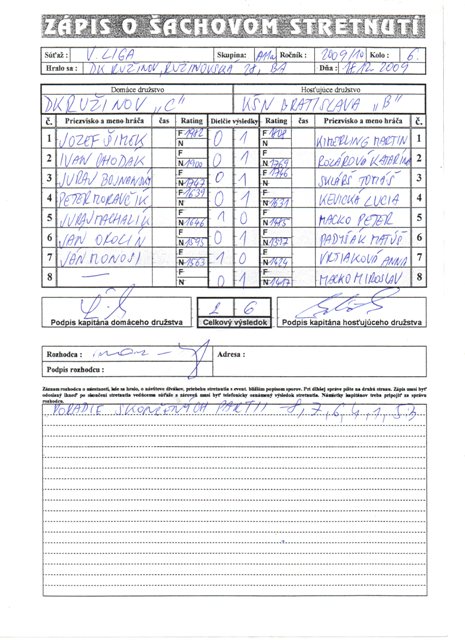 ZÁPIS O ŠACHOVOM STRETNUTÍ
Súťaž : V. LIGA Skupina: Ročník : 2009/10 Kolo : 6.
Hralo sa : DK RUŽINOV, RUŽINOVSKÁ 28, BA Dňa : 12 2009
Domáce družstvo Hosťujúce družstvo
DK RUŽINOV "C" KŠN BRATISLAVA "B"
č. Priezvisko a meno hráča čas Rating Dielčie výsledky Rating čas Priezvisko a meno hráča č.
1 JOZEF ŠIMEK F N 0 1 F N KIMERLING MARTIN 1
2 IVAN F N 1900 0 1 F N 1769 KATARÍNA 2
3 JURAJ F N 1747 0 1 F 1746 N SKLÁŘŠ TOMÁŠ 3
4 PETER MORAVČÍK F 1639 N F N 1631 KEVICKÁ LUCIA 4
5 JURAJ MACHALÍK F N 1646 1 0 F N MACKO PETER 5
6 JÁN F N 1595 0 1 F N MATÚŠ 6
7 JÁN F N 1563 1 0 F N 1424 ANNA 7
8 — F N 0 1 F N MACKO MIROSLAV 8
2 6
Podpis kapitána domáceho družstva Celkový výsledok Podpis kapitána hosťujúceho družstva
Rozhodca : Adresa :
Podpis rozhodcu :
Záznam rozhodcu o miestnosti, kde sa hralo, o návšteve divákov, priebehu stretnutia s event. bližším popisom sporov. Pri dlhšej správe píšte na druhú stranu. Zápis musí byť
odoslaný ihneď po skončení stretnutia vedúcemu súťaže a zároveň musí byť telefonicky oznámený výsledok stretnutia. Námietky kapitánov treba pripojiť za správu
rozhodcu.
PORADIE SKONČENÝCH PARTIÍ - 8, 7, 6, 4, 1, 5, 3